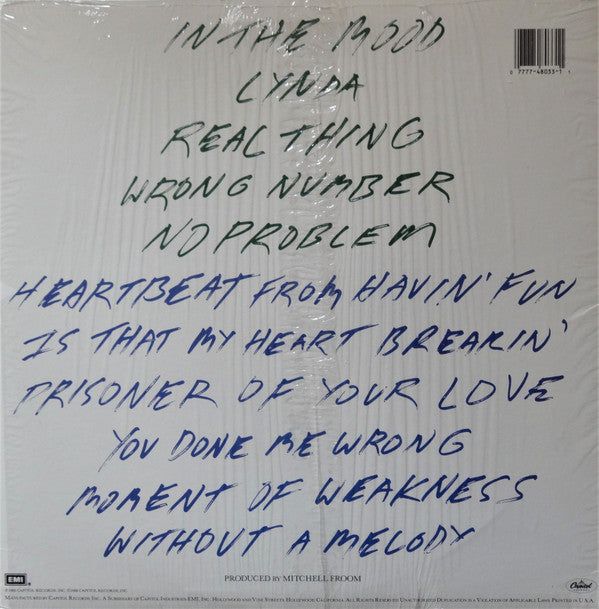 IN THE MOOD
0 7777-48033-1 1
LYNDA
REAL THING
WRONG NUMBER
NO PROBLEM
HEARTBEAT FROM HAVIN' FUN
IS THAT MY HEART BREAKIN'
PRISONER OF YOUR LOVE
YOU DONE ME WRONG
MOMENT OF WEAKNESS
WITHOUT A MELODY
PRODUCED BY MITCHELL FROOM
EMI
Capitol
CAPITOL RECORDS, INC. CAPITOL RECORDS, INC.
MANUFACTURED BY CAPITOL RECORDS, INC. A SUBSIDIARY OF CAPITOL INDUSTRIES-EMI, INC. HOLLYWOOD AND VINE STREETS, HOLLYWOOD, CALIFORNIA. ALL RIGHTS RESERVED. UNAUTHORIZED DUPLICATION IS A VIOLATION OF APPLICABLE LAWS. PRINTED IN U.S.A.